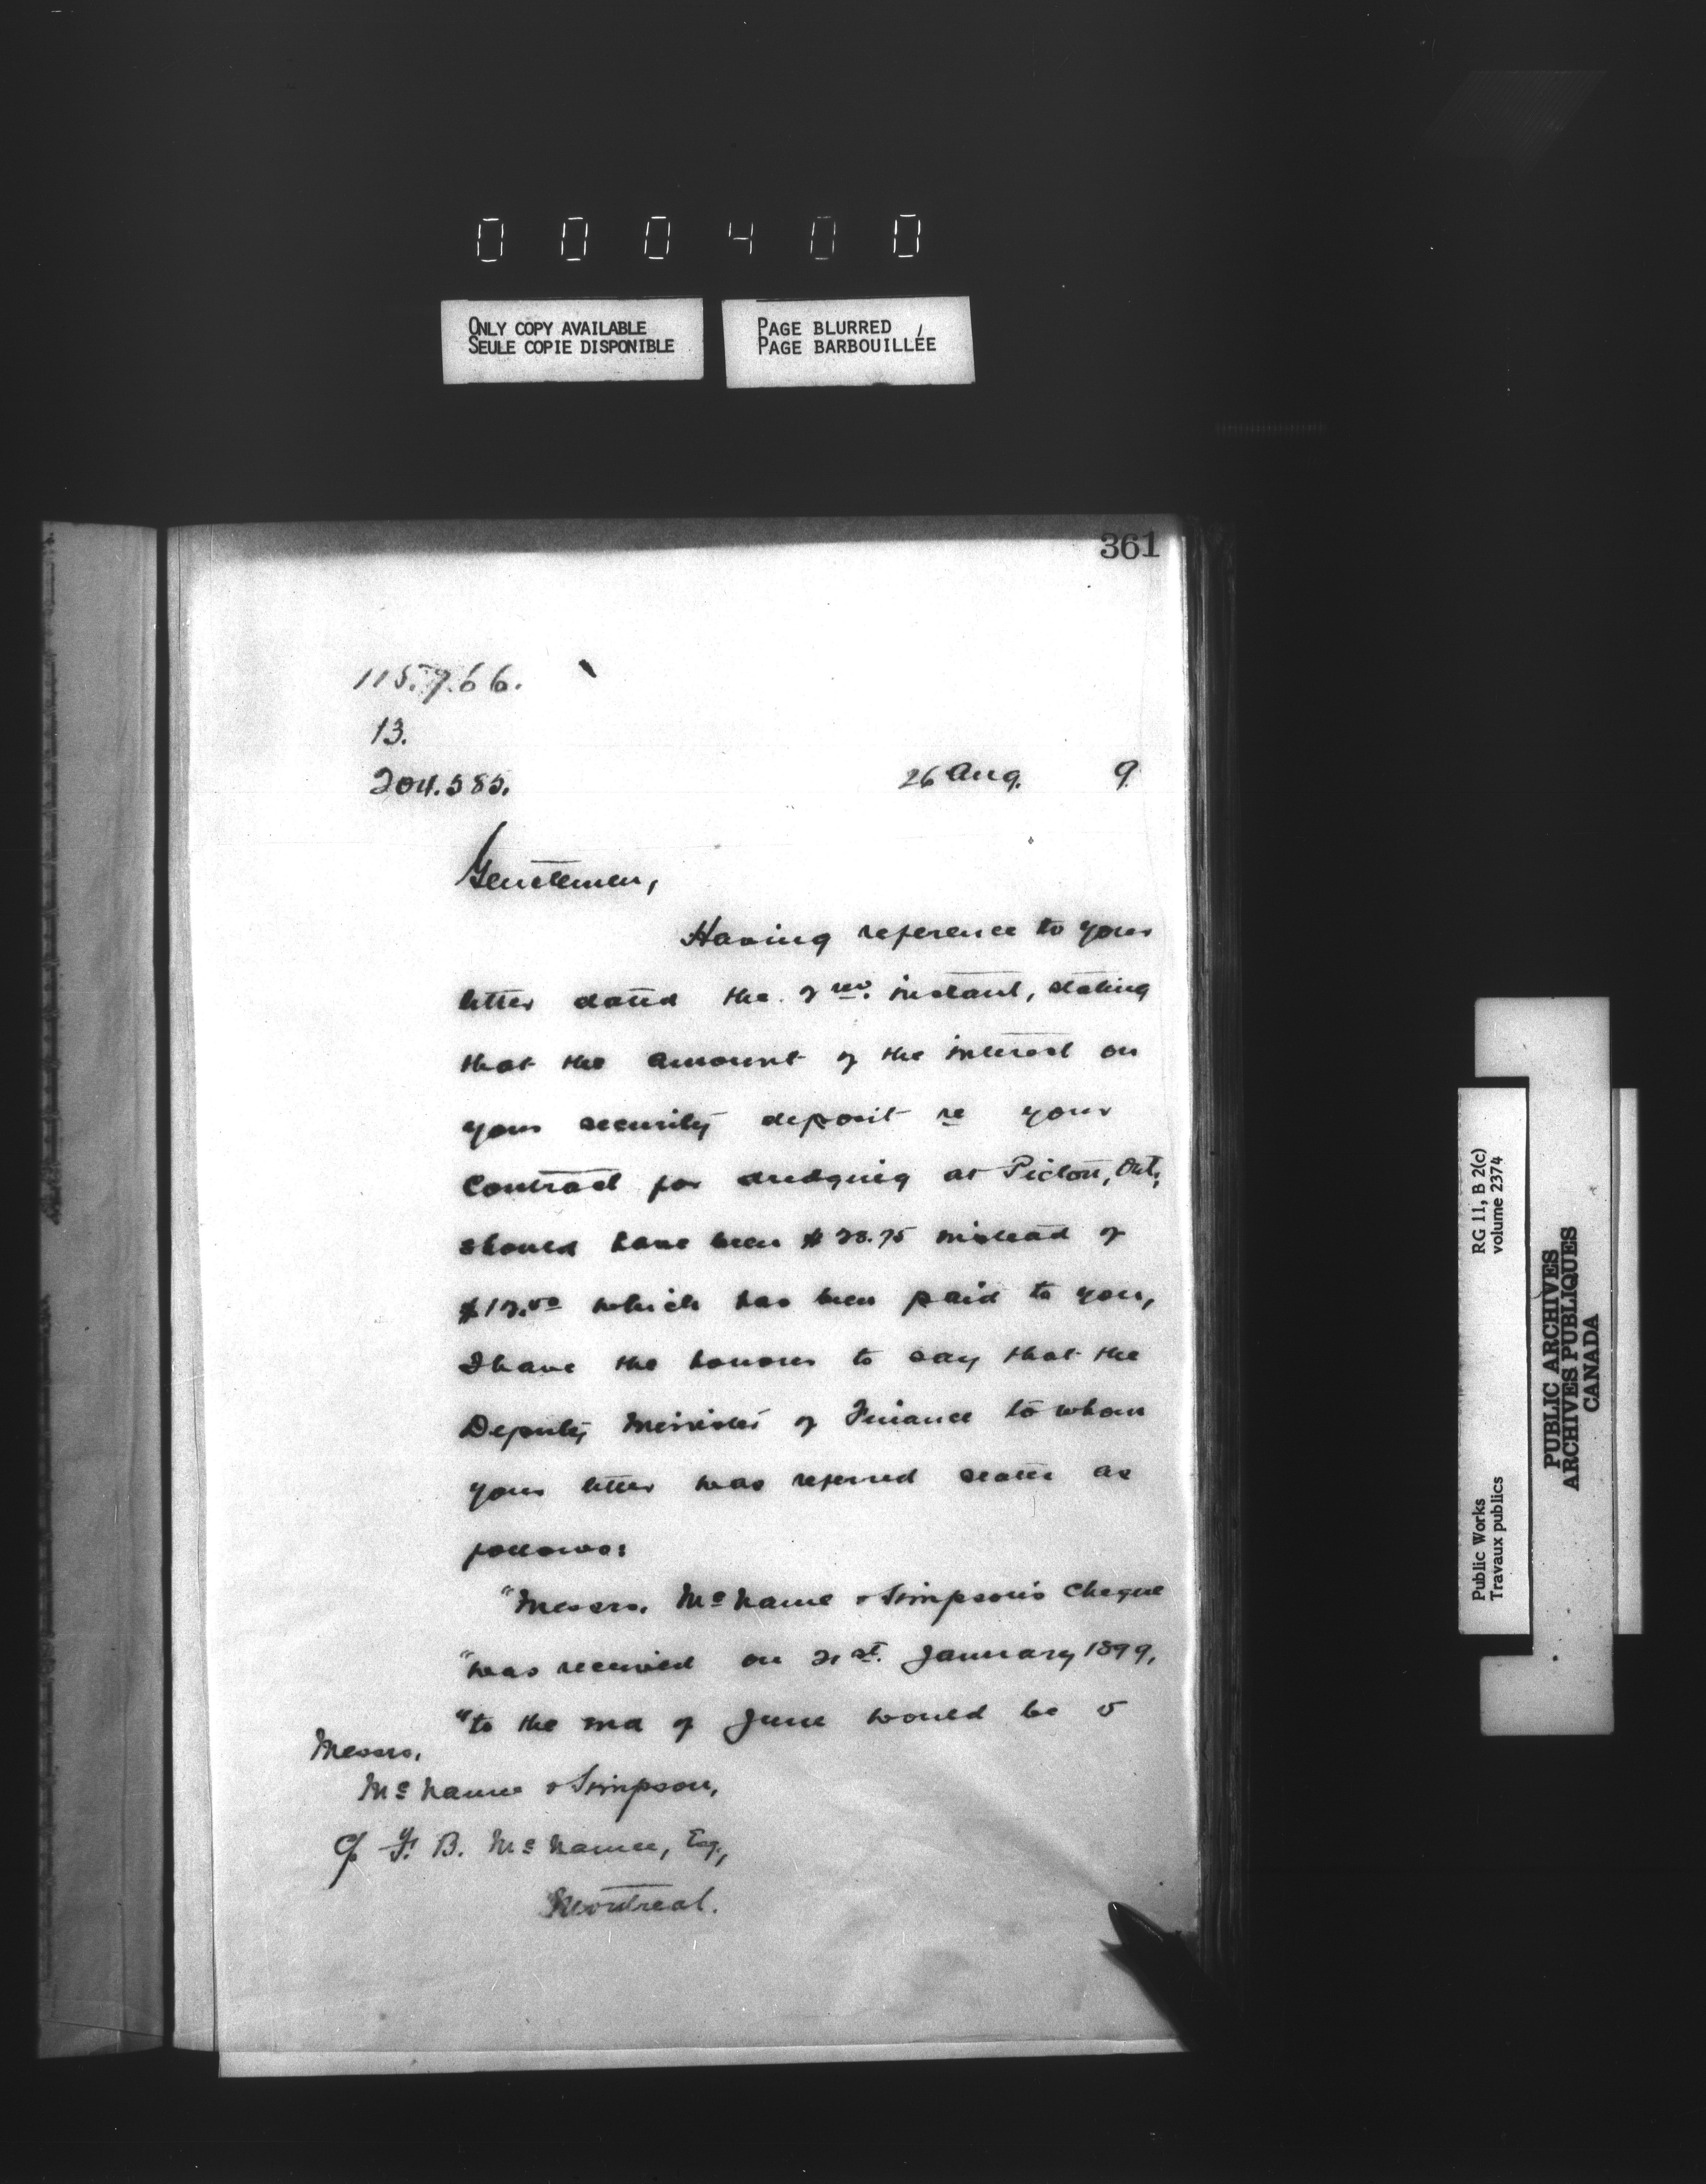 000400
ONLY COPY AVAILABLE
SEULE COPIE DISPONIBLE
PAGE BLURRED
PAGE BARBOUILLÉE
361
115.766.
13.
204.585.
26 Aug. 9
Gentlemen,
Having reference to your
letter dated the instant, stating
that the amount of the interest on
your security deposit re your
Contract for dredging at Picton, Ont.,
should have been $ instead of
which has been paid to you,
I have the honour to say that the
Deputy Minister of Finance to whom
your letter was referred states as
follows:
"Messrs. McNamee & Simpson's cheque
"was received on 21st. January 1899,
"to the end of June would be 5
Messrs.
McNamee & Simpson,
c/o F. B. McNamee, Esq.,
Montreal.
RG 11, B 2(c)
volume 2374
Public Works
Travaux publics
PUBLIC ARCHIVES
ARCHIVES PUBLIQUES
CANADA